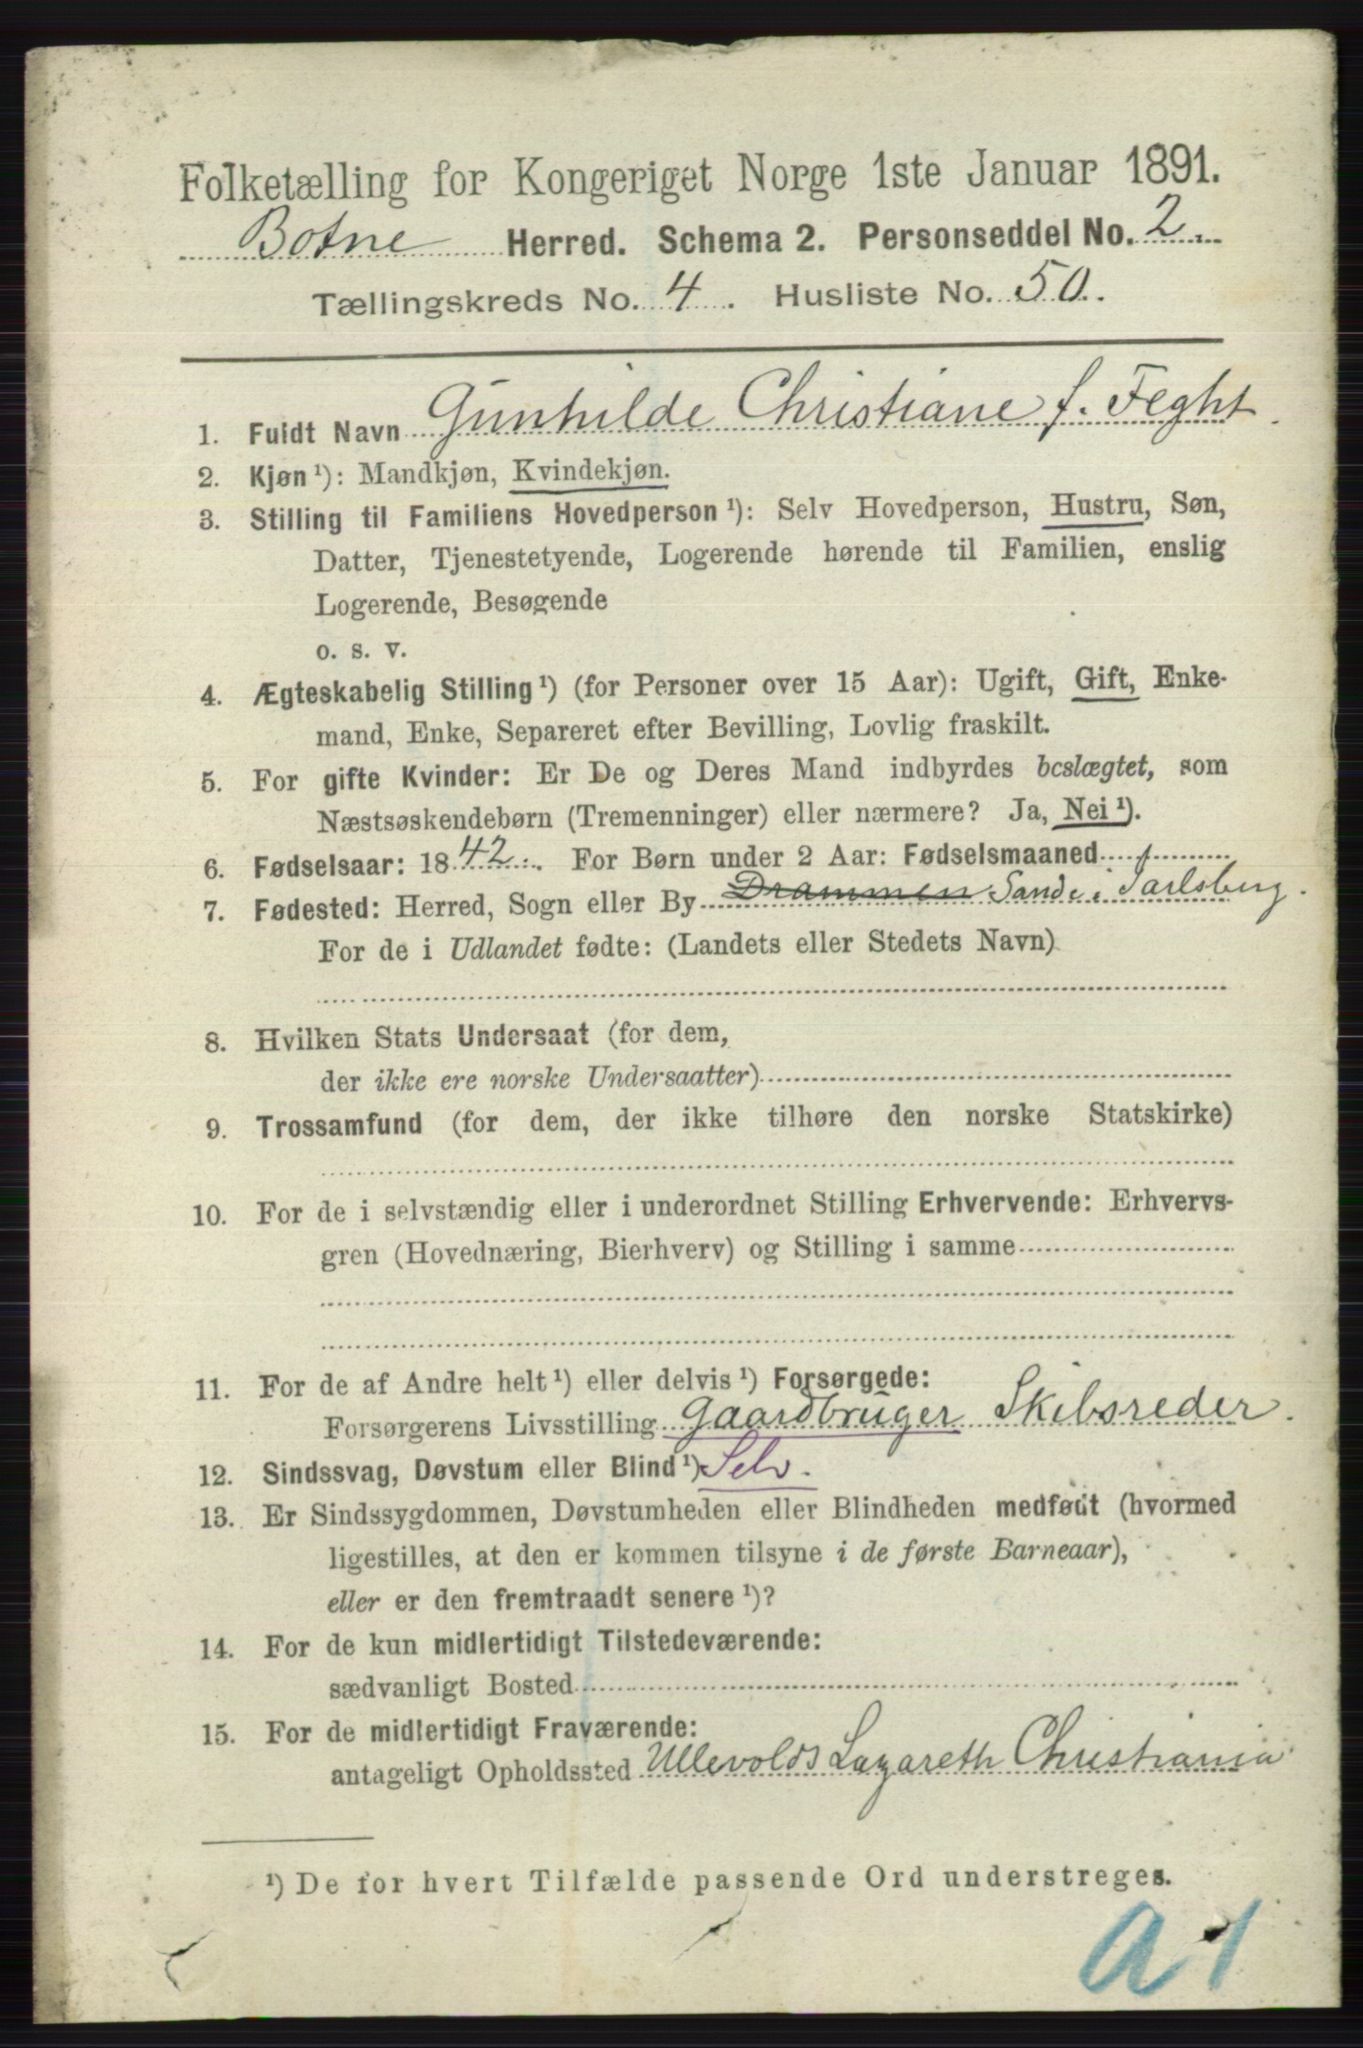 Folketælling for Kongeriget Norge 1ste Januar 1891.
Botne Herred. Schema 2. Personseddel No. 2.
Tællingskreds No. 4. Husliste No. 50.
1. Fuldt Navn Gunhilde Christiane f. Feght
2. Kjøn ¹): Mandkjøn, Kvindekjøn.
3. Stilling til Familiens Hovedperson ¹): Selv Hovedperson, Hustru, Søn,
Datter, Tjenestetyende, Logerende hørende til Familien, enslig
Logerende, Besøgende
o. s. v.
4. Ægteskabelig Stilling ¹) (for Personer over 15 Aar): Ugift, Gift, Enke-
mand, Enke, Separeret efter Bevilling, Lovlig fraskilt.
5. For gifte Kvinder: Er De og Deres Mand indbyrdes beslægtet, som
Næstsøskendebørn (Tremenninger) eller nærmere? Ja, Nei ¹).
6. Fødselsaar: 1842. For Børn under 2 Aar: Fødselsmaaned
7. Fødested: Herred, Sogn eller By Drammen Sande i Jarlsberg.
For de i Udlandet fødte: (Landets eller Stedets Navn)
8. Hvilken Stats Undersaat (for dem,
der ikke ere norske Undersaatter)
9. Trossamfund (for dem, der ikke tilhøre den norske Statskirke)
10. For de i selvstændig eller i underordnet Stilling Erhvervende: Erhvervs-
gren (Hovednæring, Bierhverv) og Stilling i samme
11. For de af Andre helt ¹) eller delvis ¹) Forsørgede:
Forsørgerens Livsstilling Gaardbruger Skibsreder.
12. Sindssvag, Døvstum eller Blind ¹) Selv.
13. Er Sindssygdommen, Døvstumheden eller Blindheden medfødt (hvormed
ligestilles, at den er kommen tilsyne i de første Barneaar),
eller er den fremtraadt senere ¹)?
14. For de kun midlertidigt Tilstedeværende:
sædvanligt Bosted
15. For de midlertidigt Fraværende:
antageligt Opholdssted Ullevolds Lazareth Christiania
¹) De for hvert Tilfælde passende Ord understreges.
a 1